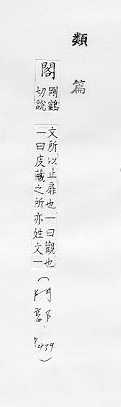 類篇
閣
剛鶴
切說
文所以止扉也一曰觀也
一曰庋藏之所亦姓文一